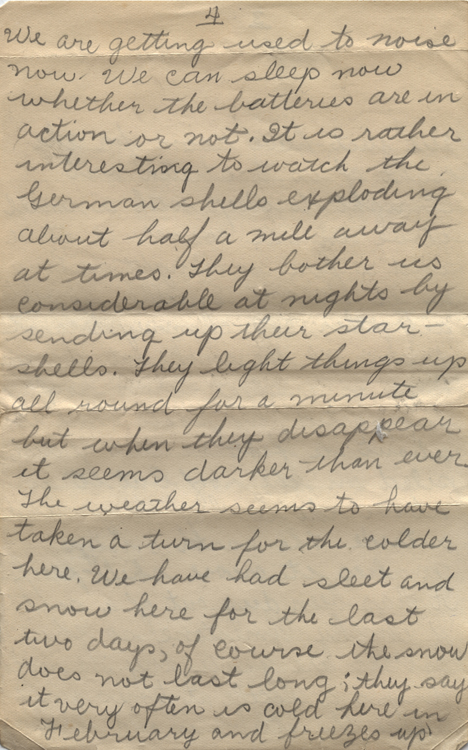 4
We are getting used to noise
now. We can sleep now
whether the batteries are in
action or not. It is rather
interesting to watch the
German shells exploding
about half a mile away
at times. They bother us
considerable at nights by
sending up their star-
shells. They light things up
all round for a minute
but when they disappear
it seems darker than ever.
The weather seems to have
taken a turn for the colder
here. We have had sleet and
snow here for the last
two days, of course the snow
does not last long; they say
it very often is cold here in
February and freezes up